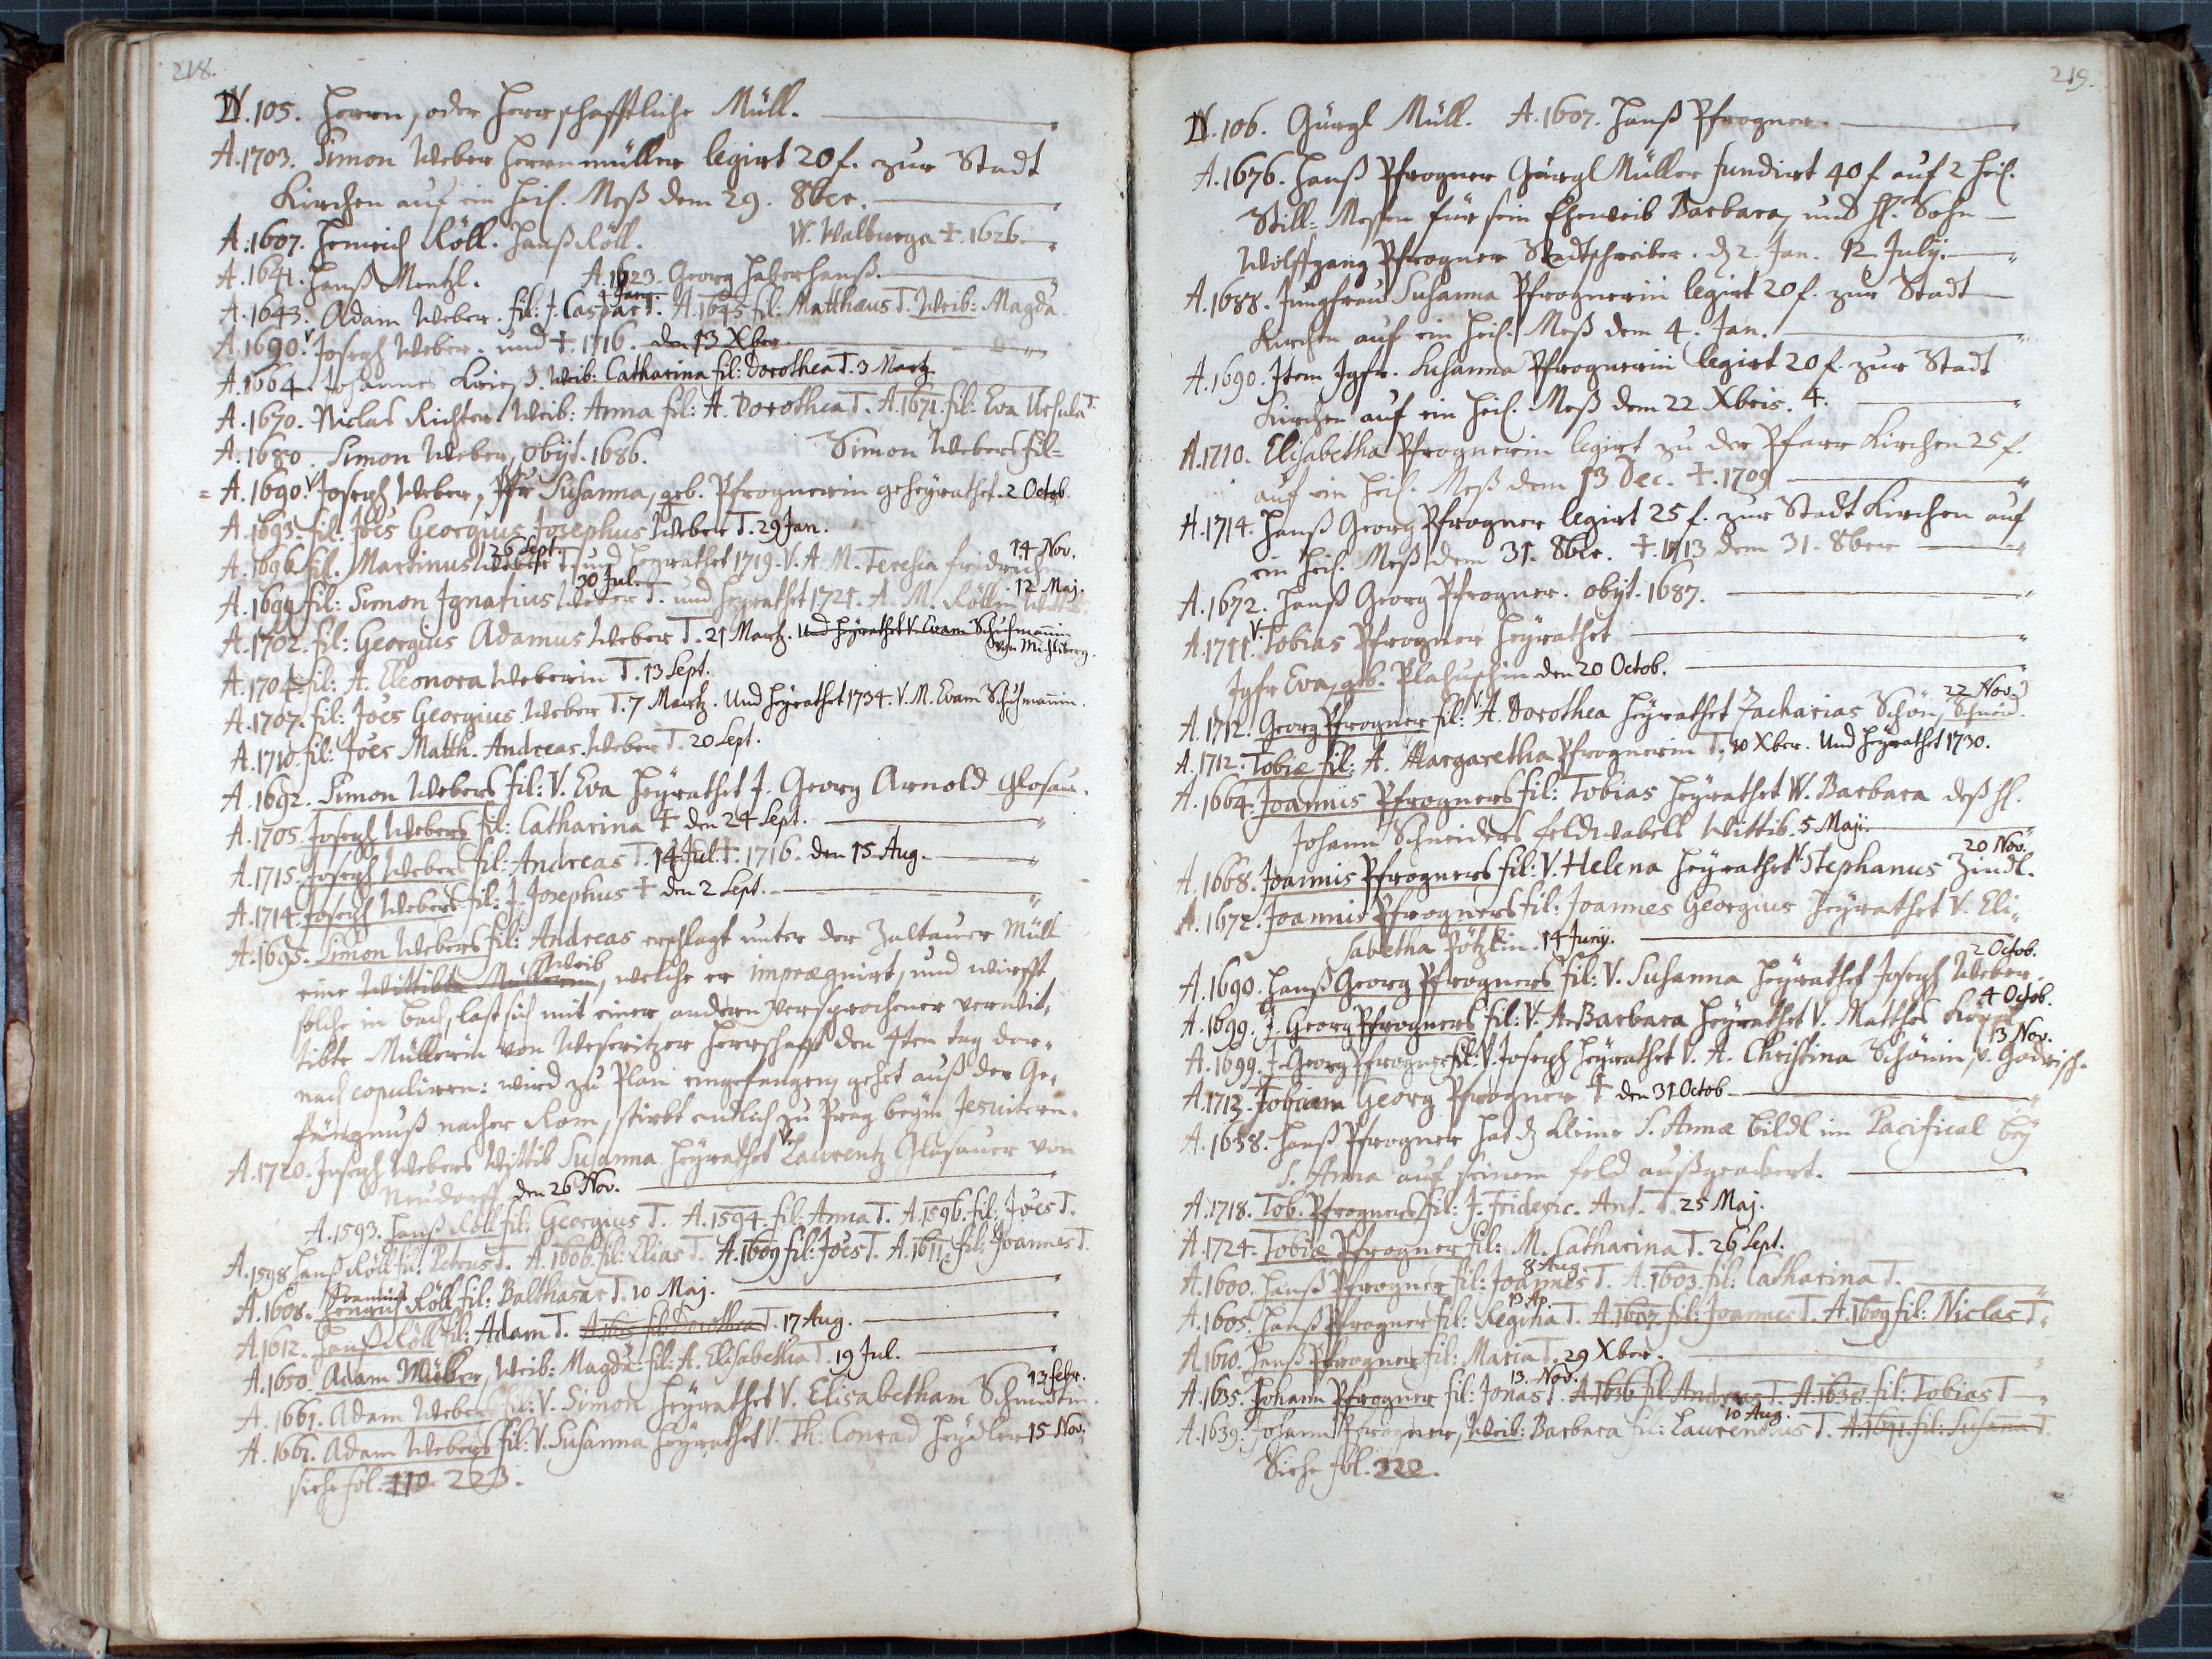 218.
N. 105. Herrn, oder Herrschafftliche Müll.
A. 1703. Simon Weber Herrnmüller legirt 20 f. zur Stadt
Kirchen auf ein heil. Meß dem 29. 8ber.
A. 1607. Heinrich Röll. Hanß Röll. W. Walburga †. 1626.
A. 1641. Hanß Mentzl. A. 1623. Georg Haberhanß.
4 Janr.
A. 1643. Adam Weber. fil: J. Caspar T. A. 1645 fil: Matthæus T. Weib: Magda.
A. 1690. V. Joseph Weber. und †. 1716. den 13 Xber.
A. 1664. Johannes Krieß. Weib: Catharina fil: Dorothea T. 3 Martz.
A. 1670. Niclas Richter. Weib: Anna fil: A. Dorothea T. A. 1671. fil: Eva Ursula T.
A. 1680. Simon Weber, obijt. 1686. Simon Webers fil=
= A. 1690. V. Joseph Weber, Jfr Susanna, geb. Pfrognerin geheyrathet. 2 Octob.
A. 1693. fil: Joes Georgius Josephus Weber T. 29 Jan.
26 Sept. 14 Nov.
A. 1696 fil. Martinus Weber T. und heyrathet 1719. V. A. M. Teresia Fridrichin
30 Jul. 12 Maj.
A. 1699 fil: Simon Ignatius Weber T. und heyrathet 1721. A. M. Röllin Wittib.
A. 1702. fil: Georgius Adamus Weber T. 21 Martz. und heyrathet V. Evam Schuhmannin
von Michlsberg.
A. 1704. fil: A. Eleonora Weberin T. 13 Sept.
A. 1707. fil: Joes Georgius Weber T. 7 Martz. Und heyrathet 1734. V. M. Evam Schuhmannin.
A. 1710. fil: Joes Matth. Andreas Weber T. 20 Sept.
A. 1692. Simon Webers fil: V. Eva heyrathet J. Georg Arnold Glosau.
A. 1705. Joseph Webers fil: Catharina † den 24 Sept.
A. 1715. Joseph Webers fil: Andreas T. 14 Jul. †. 1716. den 15 Aug.
A. 1714. Joseph Webers fil: J. Josephus † den 2 Sept.
A. 1695. Simon Webers fil: Andreas erschlagt unter der Zaltauer Müll
Weib
eine Wittibte Müllerin, welche er imprægnirt, und wirfft
solche in bach, last sich mit einer andern versprochener verwit,
tibte Müllerin von Weseritzer Herrschafft den 4ten tag dar,
nach copuliren: wird zu Plan eingefangen, gehet auß der Ge,
fängnuß nacher Rom, stirbt endlich zu Prag beym Jesuitern.
A. 1720. Joseph Webers Wittib Susanna heyrathet V. Laurentz Glosauer von
Neudorff den 26 Nov.
A. 1593. Hanß Röll fil: Georgius T. A. 1594. fil: Anna T. A. 1596. fil: Joes T.
A. 1598 Hanß Röll fil: Petrus T. A. 1606. fil: Elias T. A. 1609 fil: Joes T. A. 1611. fil: Joannes T.
Joannis
A. 1608. Heinrich Röll fil: Balthasar T. 10 Maj.
A. 1612. Hanß Röll fil: Adam T. A. 1615 fil: Dorothea T. 17 Aug.
A. 1650. Adam Müller, Weib: Magda: fil: A. Elisabetha T. 19 Jul.
13 Febr.
A. 1661. Adam Webers fil: V. Simon heyrathet V. Elisabetham Schmidtin.
A. 1661. Adam Webers fil: V. Susanna heyrathet V. Th. Conrad Heydler 15 Nov.
siehe fol. 110 223.
219.
N. 106. Gürgl Müll. A. 1607. Hanß Pfrogner.
A. 1676. Hanß Pfrogner Gürgl Müller fundirt 40 f auf 2 heil.
Still=Messen für sein Eheweib Barbara, und H. Sohn
Wolffgang Pfrogner Stadtschreiber. d. 2. Jan. 12 July.
A. 1688. Jungfrau Susanna Pfrognerin legirt 20 f. zur Stadt
Kirchen auf ein heil. Meß dem 4. Jan.
A. 1690. Item Jgfr. Susanna Pfrognerin legirt 20 f. zur Stadt
Kirchen auf ein heil. Meß dem 22 Xbris. 4.
A. 1710. Elisabetha Pfrognerin legirt zu der Pfarr Kirchen 25 f.
auf ein heil. Meß dem 13 Dec. †. 1709
A. 1714. Hanß Georg Pfrogner legirt 25 f. zur Stadt Kirchen auf
ein heil. Meß dem 31. 8ber. †. 1713 dem 31. 8ber
A. 1672. Hanß Georg Pfrogner. obijt. 1687.
A. 1711. V. Tobias Pfrogner heyrathet
Jgfr Eva, geb. Plahuschin den 20 Octob.
22 Nov.
A. 1712. Georg Pfrogner fil: V. A. Dorothea heyrathet Zacharias Schön, Schneid.
A. 1712. Tobiæ fil: A. Margaretha Pfrognerin T. 10 Xber. Und heyrathet 1730.
A. 1664. Joannis Pfrogners fil: Tobias heyrathet W. Barbara deß H.
Johann Schneiders feldwabels Wittib. 5 Maji.
20 Nov.
A. 1668. Joannis Pfrogners fil: V. Helena heyrathet V. Stephanus Zindl.
A. 1672. Joannis Pfrogners fil: Joannes Georgius heyrathet V. Eli,
sabetha Pötzlin. 14 Junij.
2 Octob.
A. 1690. Hanß Georg Pfrogners fil: V. Susanna heyrathet Joseph Weber.
4 Octob.
A. 1699. J. Georg Pfrogners fil: V. A. Barbara heyrathet V. Matthes
13 Nov.
A. 1699. J. Georg Pfrogner fil: V. Joseph heyrathet V. A. Christina Schönin, v. Godrisch.
A. 1713. Johann Georg Pfrogner † den 31 Octob
A. 1658. Hanß Pfrogner hat d. kleine S. Annæ bildl im Pacifical bey
S. Anna auf seinem feld außgeackert.
A. 1718. Tob. Pfrogners fil: J. Frideric. Ant. T. 25 Maj.
A. 1724. Tobiæ Pfrogner fil: M. Catharina T. 26 Sept.
8 Aug
A. 1600. Hanß Pfrogner fil: Joannes T. A. 1603 fil: Catharina T.
13 Ap
A. 1605. Hanß Pfrogner fil: Regina T. A. 1607. fil: Joannes T. A. 1609 fil: Niclas T.
A. 1610. Hanß Pfrogner fil: Maria T. 29 Xber.
13. Nov.
A. 1635. Johann Pfrogner fil: Jonas T. A. 1636 fil: Andreas T. A. 1638. fil: Tobias T
10 Aug.
A. 1639. Johann Pfrogner, Weib: Barbara fil: Laurentius T. A. 1641. fil: Susanna T.
Siehe fol. 222.